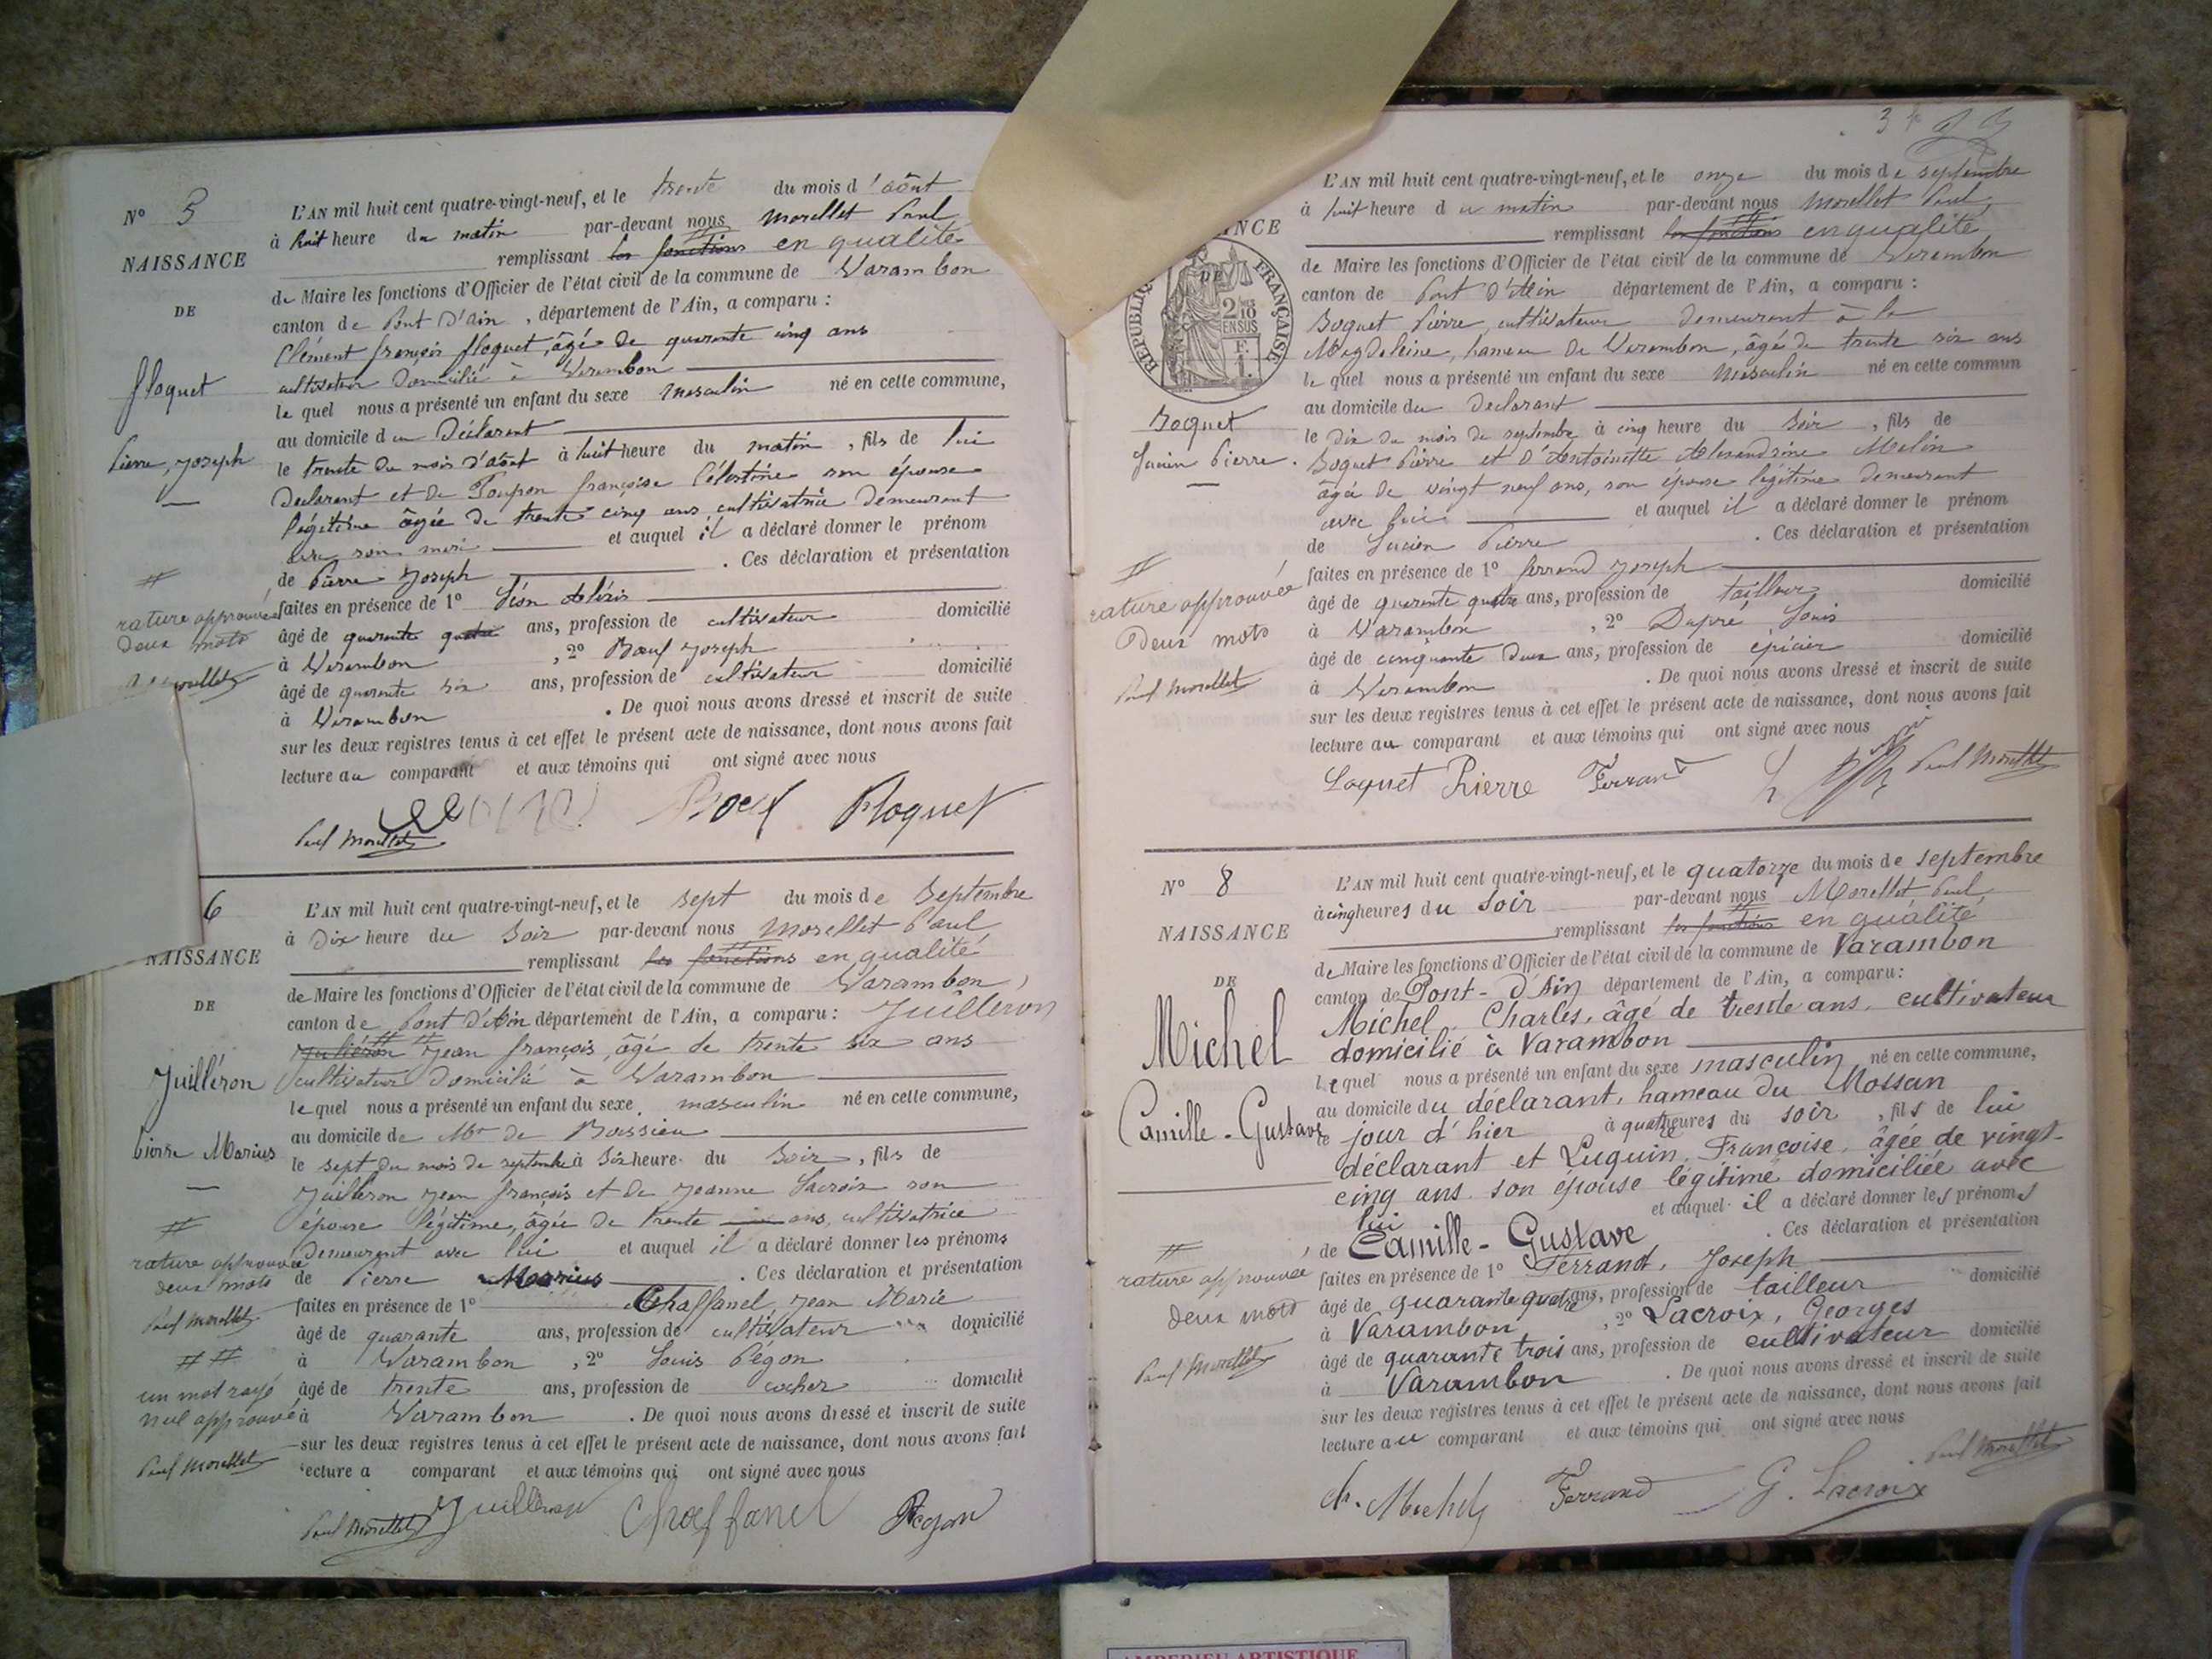 N° 5
NAISSANCE
DE
floquet
Pierre, Joseph
L'AN mil huit cent quatre-vingt-neuf, et le trente du mois d'août
à huit heure du matin par-devant nous Morellet Paul
remplissant les fonctions en qualité
de Maire les fonctions d'Officier de l'état civil de la commune de Varambon
canton de Pont d'ain, département de l'Ain, a comparu :
Clément françois floquet, âgé de quarante cinq ans
cultivateur domicilié à Varambon
lequel nous a présenté un enfant du sexe masculin né en cette commune,
au domicile du Déclarant
le trente du mois d'août à huit heure du matin, fils de lui
Déclarant et de Poupon françoise Célestine son épouse
légitime âgée de trente cinq ans cultivatrice demeurant
avec son mari et auquel il a déclaré donner le prénom
de Pierre Joseph. Ces déclaration et présentation
faites en présence de 1° Léon Alexis
âgé de quarante quatre ans, profession de cultivateur domicilié
à Varambon, 2° Bœuf Joseph
âgé de quarante six ans, profession de cultivateur domicilié
à Varambon. De quoi nous avons dressé et inscrit de suite
sur les deux registres tenus à cet effet le présent acte de naissance, dont nous avons fait
lecture au comparant et aux témoins qui ont signé avec nous
#
rature approuvée
deux mots
Morellet
Paul Morellet
Floquet
6
NAISSANCE
DE
Juilléron
Pierre Marius
L'AN mil huit cent quatre-vingt-neuf, et le sept du mois de Septembre
à Dix heure du Soir par-devant nous Morellet Paul
remplissant les fonctions en qualité
de Maire les fonctions d'Officier de l'état civil de la commune de Varambon,
canton de Pont d'Ain département de l'Ain, a comparu : Juilléron
Jean françois, âgé de trente six ans
cultivateur domicilié à Varambon
lequel nous a présenté un enfant du sexe masculin né en cette commune,
au domicile de Mr de Boissieu
le sept du mois de septembre à Six heure du Soir, fils de
Juilléron Jean françois et de Jeanne Lacroix son
épouse légitime, âgée de trente ans, cultivatrice
demeurant avec lui et auquel il a déclaré donner les prénoms
de Pierre Marius. Ces déclaration et présentation
faites en présence de 1° Chaffanel Jean Marie
âgé de quarante ans, profession de cultivateur domicilié
à Varambon, 2° Louis Pégon
âgé de trente ans, profession de cocher domicilié
à Varambon. De quoi nous avons dressé et inscrit de suite
sur les deux registres tenus à cet effet le présent acte de naissance, dont nous avons fait
lecture a comparant et aux témoins qui ont signé avec nous
#
rature approuvée
deux mots
Paul Morellet
# #
un mot rayé
nul approuvé
Paul Morellet
Paul Morellet Juilleron Chaffanel Pegon
NCE
RÉPUBLIQUE FRANÇAISE
DE
2/10 EN SUS
F. 1.
Loquet
Lucien Pierre.
L'AN mil huit cent quatre-vingt-neuf, et le onze du mois de septembre
à huit heure du matin par-devant nous Morellet Paul
remplissant les fonctions en qualité
de Maire les fonctions d'Officier de l'état civil de la commune de Varambon
canton de Pont d'Ain département de l'Ain, a comparu :
Loquet Pierre, cultivateur demeurant à la
Magdeleine, hameau de Varambon, âgé de trente six ans
lequel nous a présenté un enfant du sexe masculin né en cette commun
au domicile du Déclarant
le Dix du mois de septembre à cinq heure du Soir, fils de
Loquet Pierre et d'Antoinette Alexandrine Melin
âgée de vingt neuf ans, son épouse légitime demeurant
avec lui et auquel il a déclaré donner le prénom
de Lucien Pierre. Ces déclaration et présentation
faites en présence de 1° ferrand Joseph
âgé de quarante quatre ans, profession de tailleur domicilié
à Varambon, 2° Dupré Louis
âgé de cinquante deux ans, profession de épicier domicilié
à Varambon. De quoi nous avons dressé et inscrit de suite
sur les deux registres tenus à cet effet le présent acte de naissance, dont nous avons fait
lecture au comparant et aux témoins qui ont signé avec nous
#
rature approuvée
Deux mots
Paul Morellet
Loquet Pierre Ferrand Paul Morellet
N° 8
NAISSANCE
DE
Michel
Camille-Gustave
L'AN mil huit cent quatre-vingt-neuf, et le quatorze du mois de septembre
à cinq heures du soir par-devant nous Morellet Paul
remplissant les fonctions en qualité
de Maire les fonctions d'Officier de l'état civil de la commune de Varambon
canton de Pont-d'Ain département de l'Ain, a comparu :
Michel, Charles, âgé de trente ans, cultivateur
domicilié à Varambon
lequel nous a présenté un enfant du sexe masculin né en cette commune,
au domicile du déclarant, hameau du Mossan
le jour d'hier à quatre heures du soir, fils de lui
déclarant et Luguin, Françoise, âgée de vingt-
cinq ans son épouse légitime domiciliée avec
lui et auquel il a déclaré donner les prénoms
de Camille-Gustave. Ces déclaration et présentation
faites en présence de 1° Ferrand, Joseph
âgé de quarante quatre ans, profession de tailleur domicilié
à Varambon, 2° Lacroix, Georges
âgé de quarante trois ans, profession de cultivateur domicilié
à Varambon. De quoi nous avons dressé et inscrit de suite
sur les deux registres tenus à cet effet le présent acte de naissance, dont nous avons fait
lecture au comparant et aux témoins qui ont signé avec nous
#
rature approuvée
deux mots
Paul Morellet
Ch. Michel Ferrand G. Lacroix Paul Morellet